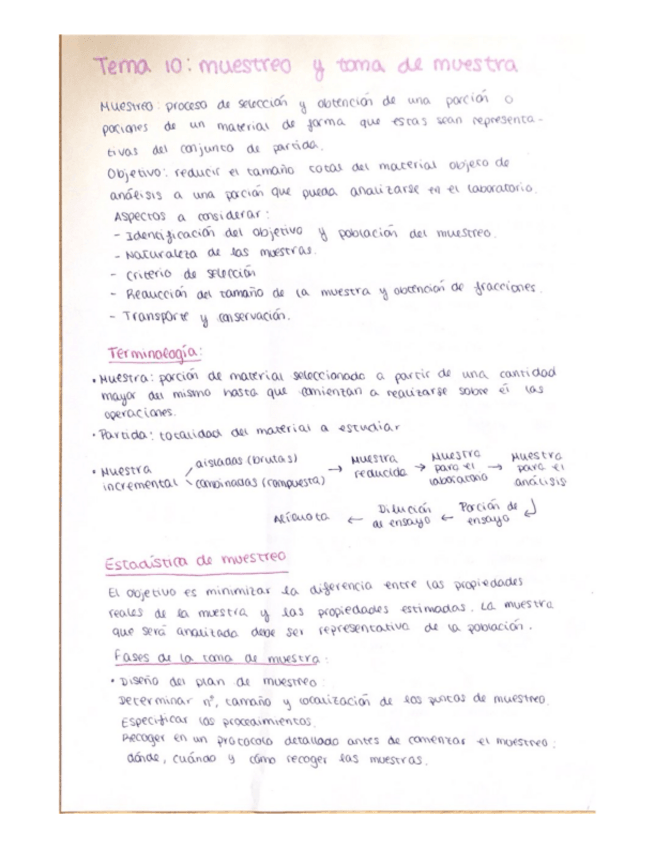 Tema 10: muestreo y toma de muestra
Muestreo: proceso de selección y obtención de una porción o
pociones de un material de forma que estas sean representa-
tivas del conjunto de partida.
Objetivo: reducir el tamaño total del material objeto de
análisis a una porción que pueda analizarse en el laboratorio.
Aspectos a considerar:
- Identificación del objetivo y población del muestreo.
- Naturaleza de las muestras.
- Criterio de selección
- Reducción del tamaño de la muestra y obtención de fracciones.
- Transporte y conservación.
Terminología:
• Muestra: porción de material seleccionado a partir de una cantidad
mayor del mismo hasta que comienzan a realizarse sobre él las
operaciones.
• Partida: totalidad del material a estudiar
• Muestra incremental
aisladas (brutas)
combinadas (compuesta)
→ Muestra reducida → Muestra para el laboratorio → Muestra para el análisis
Alícuota ← Dilución de ensayo ← Porción de ensayo
Estadística de muestreo
El objetivo es minimizar la diferencia entre las propiedades
reales de la muestra y las propiedades estimadas. La muestra
que será analitada debe ser representativa de la población.
Fases de la toma de muestra:
• Diseño del plan de muestreo:
Determinar nº, tamaño y localización de los puntos de muestreo.
Especificar los procedimientos.
Recoger en un protocolo detallado antes de comenzar el muestreo:
dónde, cuándo y cómo recoger las muestras.